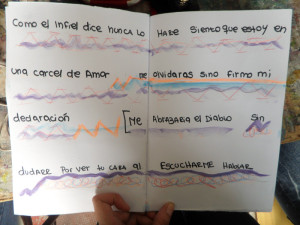 Como el infiel dice nunca lo Hare Siento que estoy en
una carcel de Amor me olvidaras sino firmo mi
declaración [Me Abrazaria el Diablo Sin
dudar Por ver tu cara al ESCUCHARME HABLAR